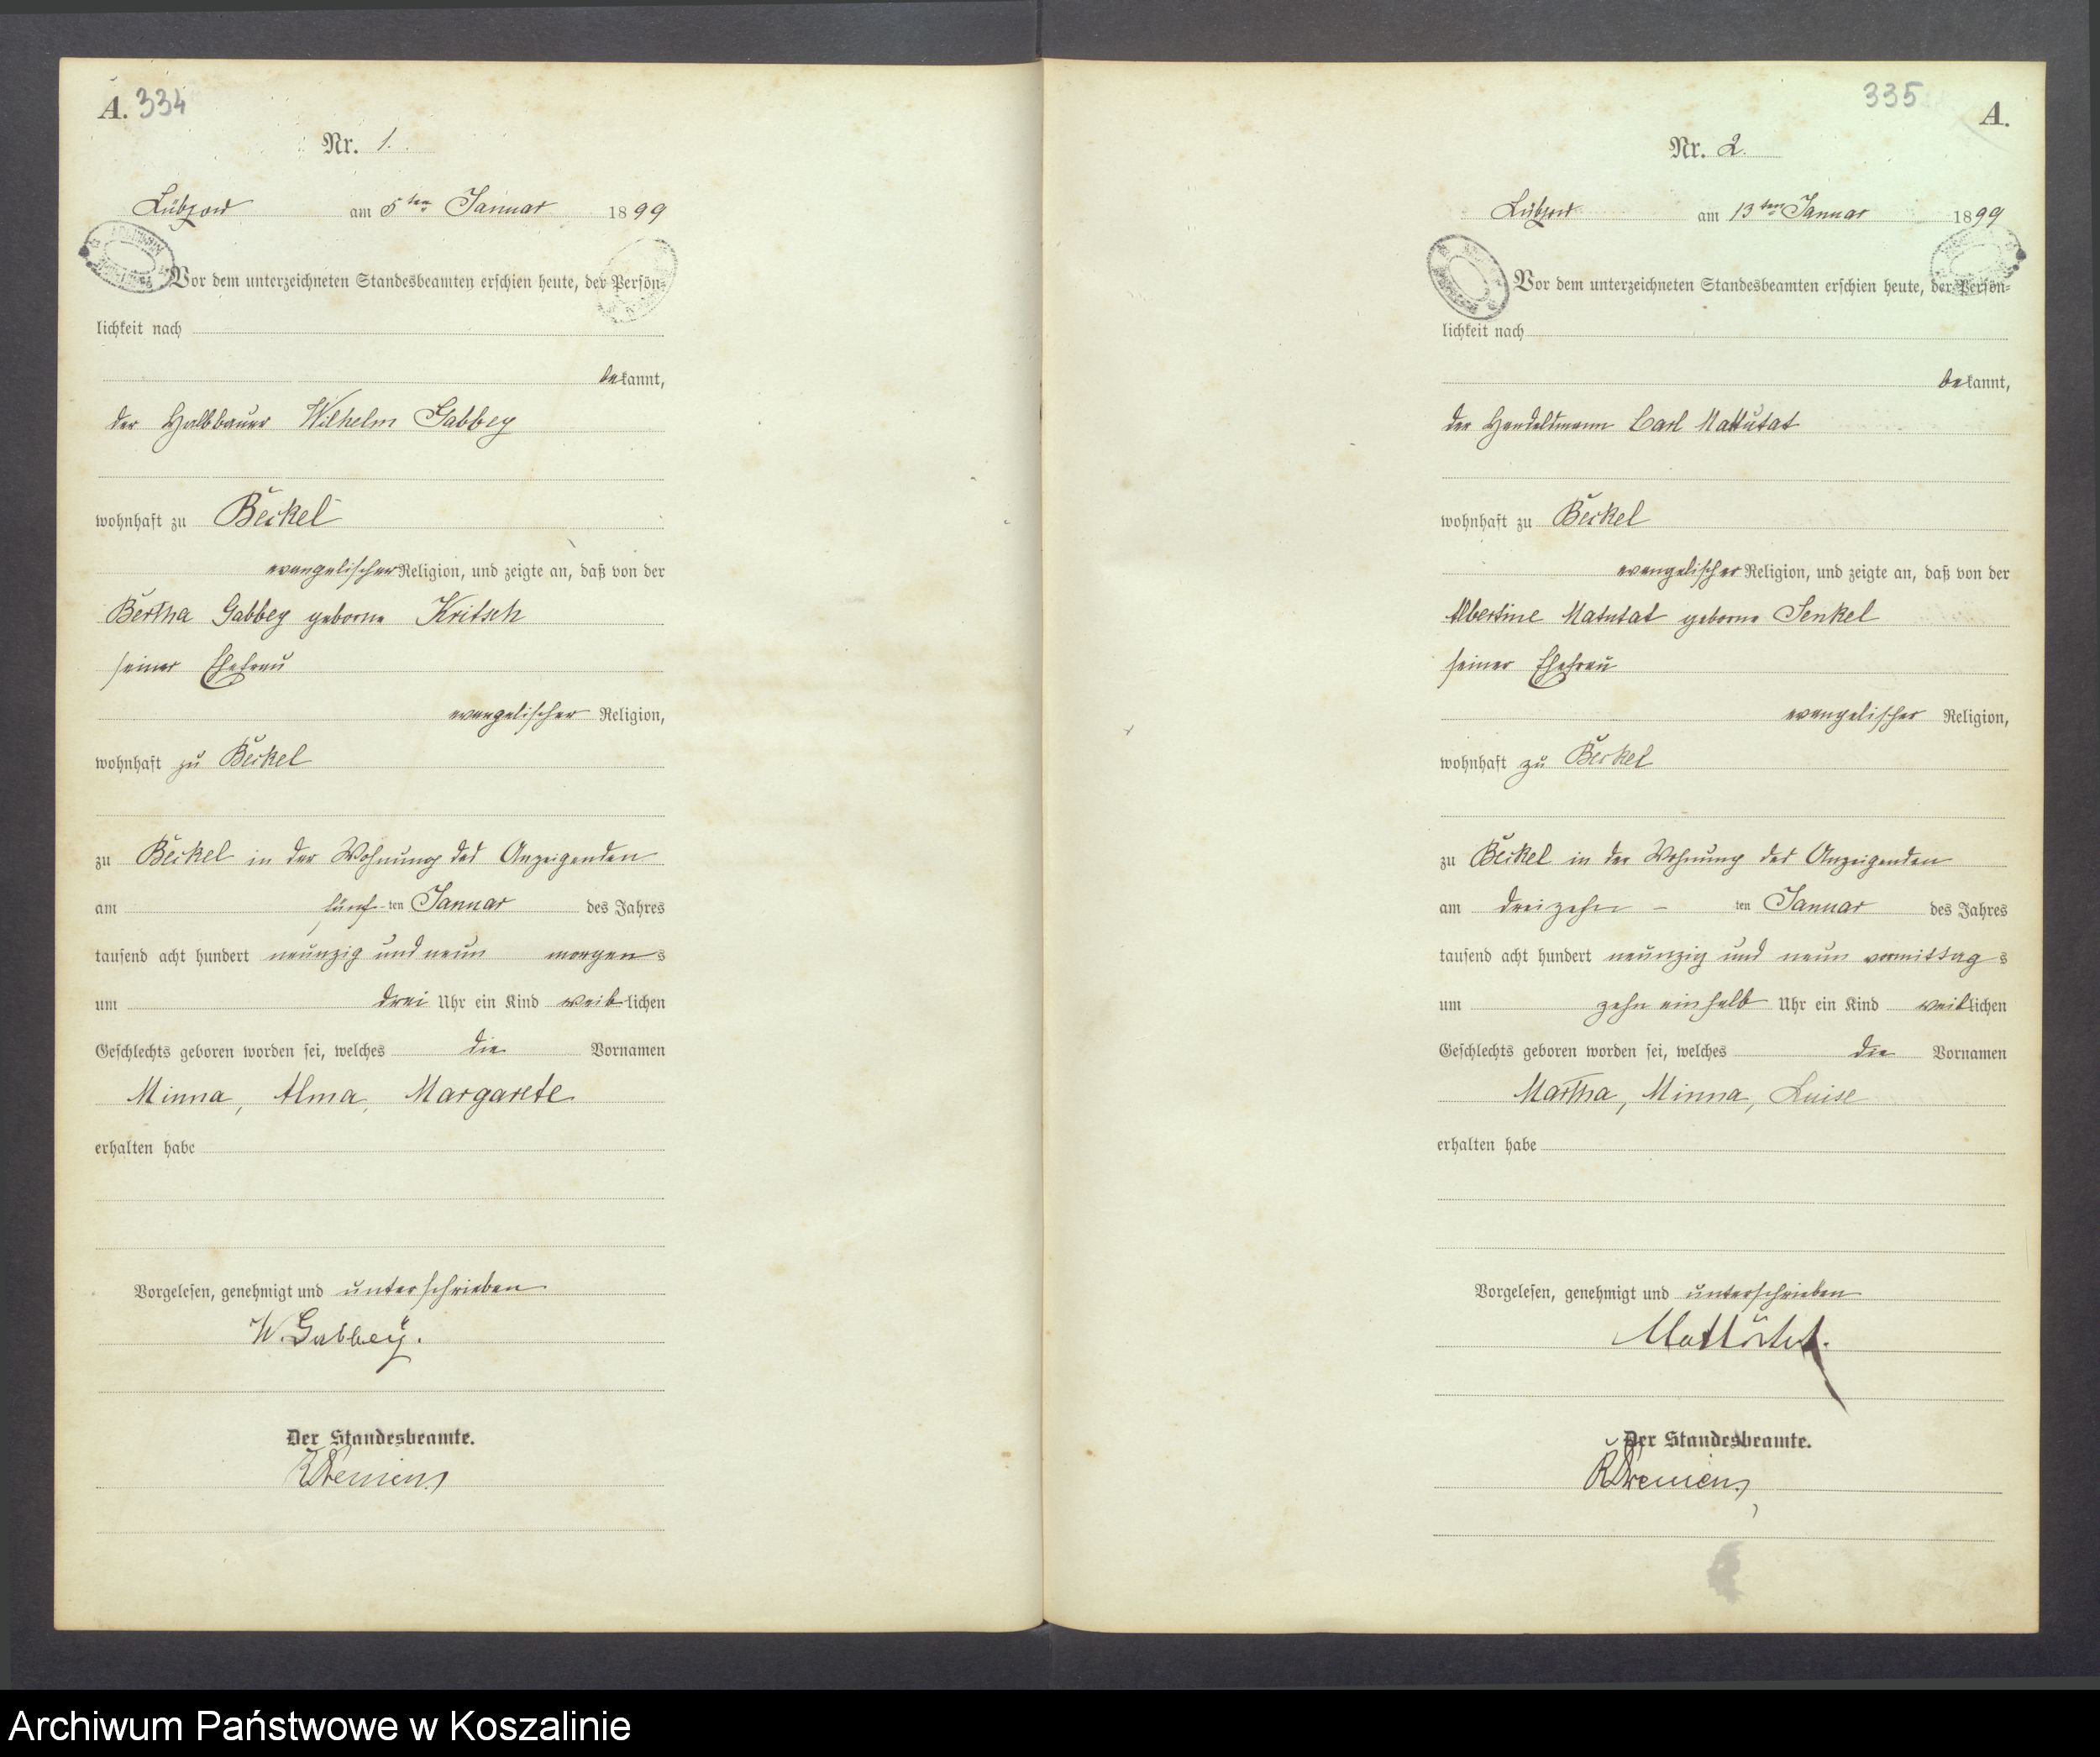 A. 334
Nr. 1.
Lübzow am 5ten Januar 1899
Vor dem unterzeichneten Standesbeamten erschien heute, der Persön-
lichkeit nach
bekannt,
der Halbbauer Wilhelm Gabbey
wohnhaft zu Beckel
evangelischer Religion, und zeigte an, daß von der
Bertha Gabbey geborne Kritsch
seiner Ehefrau
evangelischer Religion,
wohnhaft zu Beckel
zu Beckel in der Wohnung des Anzeigenden
am fünf-ten Januar des Jahres
tausend acht hundert neunzig und neun morgens
um drei Uhr ein Kind weiblichen
Geschlechts geboren worden sei, welches die Vornamen
Minna, Alma, Margarete
erhalten habe
Vorgelesen, genehmigt und unterschrieben
W. Gabbey.
Der Standesbeamte.
335 A.
Nr. 2.
Lübzow am 13ten Januar 1899
Vor dem unterzeichneten Standesbeamten erschien heute, der Persön-
lichkeit nach
bekannt,
der Handelsmann Carl Mattutat
wohnhaft zu Beckel
evangelischer Religion, und zeigte an, daß von der
Albertine Matutat geborne Senkel
seiner Ehefrau
evangelischer Religion,
wohnhaft zu Beckel
zu Beckel in der Wohnung des Anzeigenden
am dreizehn - ten Januar des Jahres
tausend acht hundert neunzig und neun vormittags
um zehn einhalb Uhr ein Kind weiblichen
Geschlechts geboren worden sei, welches die Vornamen
Martha, Minna, Luise
erhalten habe
Vorgelesen, genehmigt und unterschrieben
Der Standesbeamte.
Archiwum Państwowe w Koszalinie